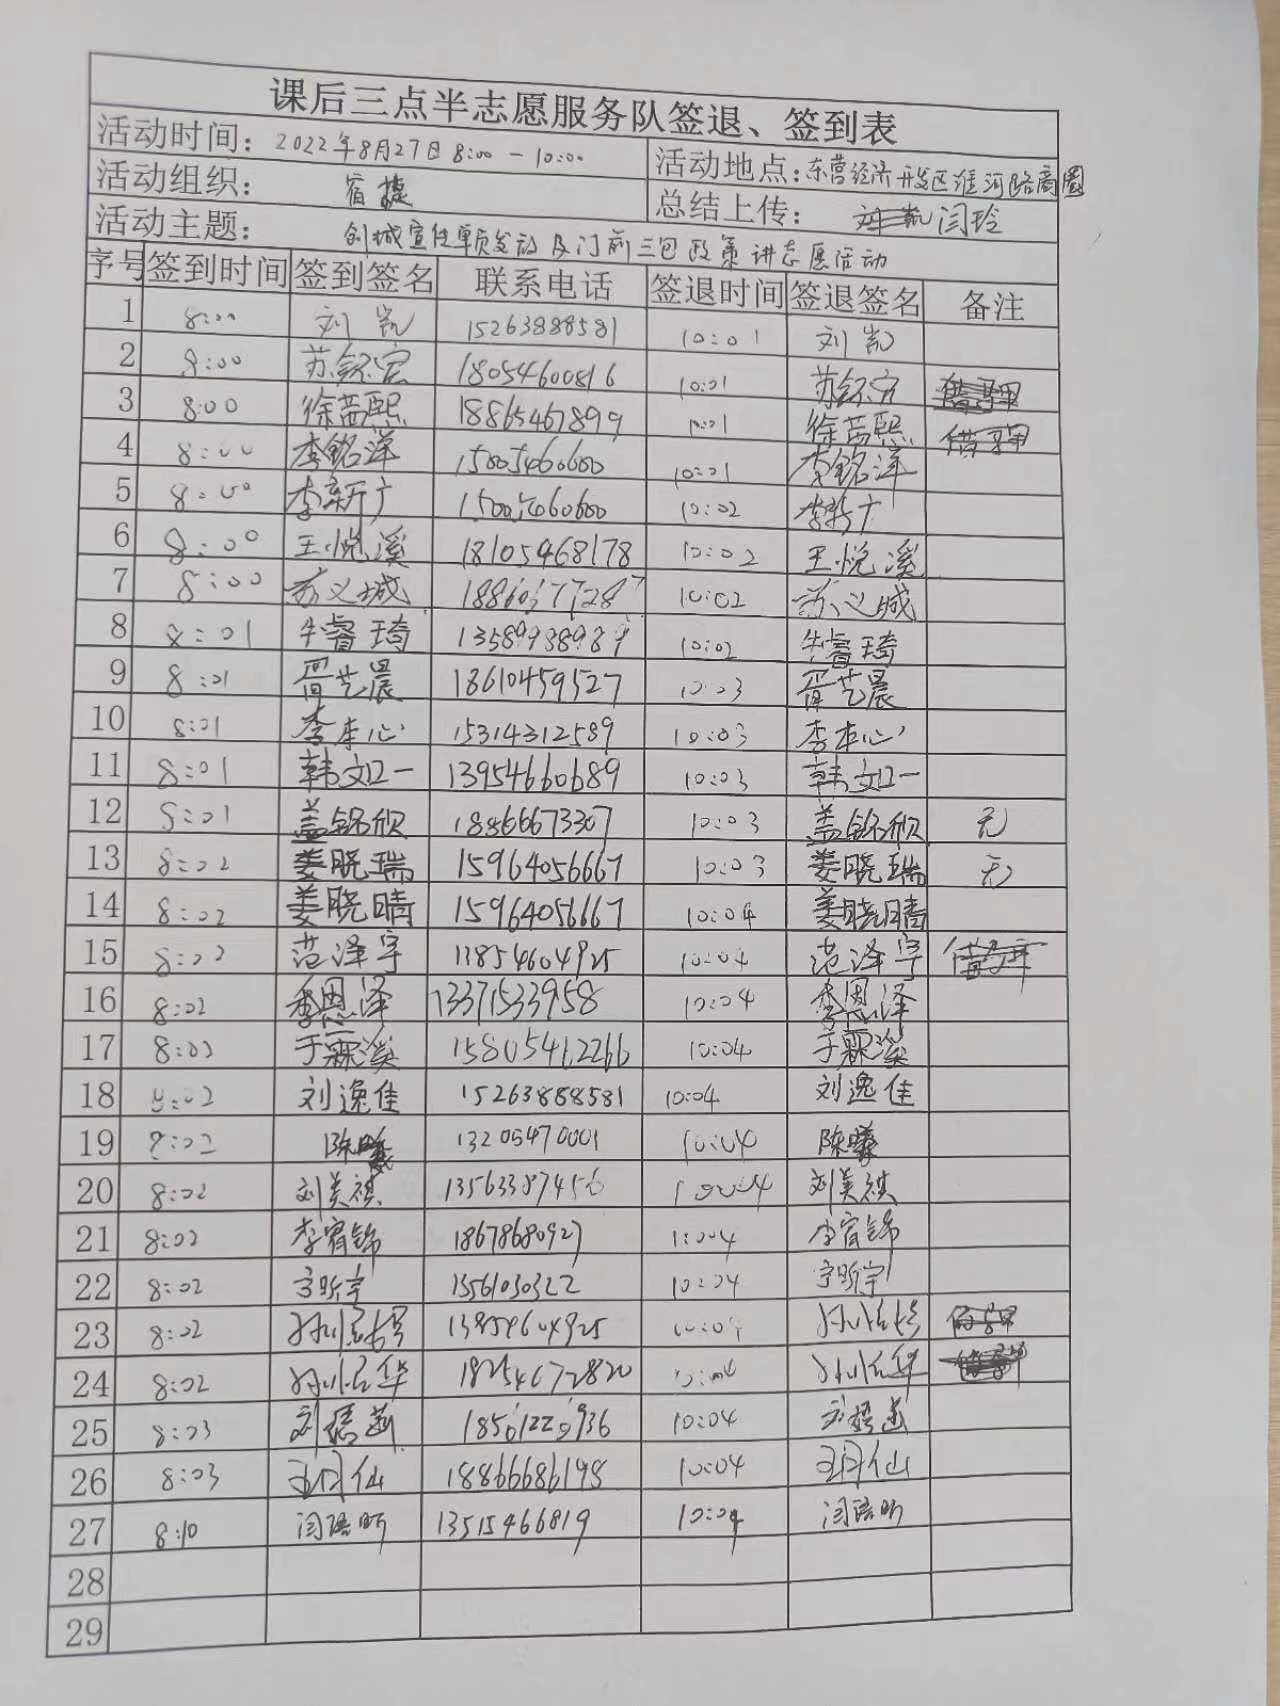 课后三点半志愿服务队签退、签到表
活动时间：2022年8月27日 8:00-10:00 活动地点：东营经济开发区淮河路商圈
活动组织：宿捷 总结上传：闫玲
活动主题：创城宣传单页发放及门前三包政策讲志愿活动
序号 签到时间 签到签名 联系电话 签退时间 签退签名 备注
1 8:00 刘凯 15263888581 10:01 刘凯
2 8:00 苏钰宏 18054600816 10:01
3 8:00 18865467899 10:01
4 8:00 李铭洋 15005460600 10:01 李铭洋
5 8:00 李新广 10:02 李新广
6 8:00 王悦溪 18105468178 10:02 王悦溪
7 8:00 苏义城 10:02 苏义城
8 8:01 牛睿琦 13589938989 10:02 牛睿琦
9 8:01 胥艺晨 18610459527 10:03 胥艺晨
10 8:01 李本心 15314312589 10:03 李本心
11 8:01 韩如一 13954660689 10:03 韩如一
12 8:01 盖铭欣 18866673307 10:03 盖铭欣 无
13 8:02 姜晓瑞 15964056667 10:03 姜晓瑞 无
14 8:02 姜晓晴 15964056667 10:04 姜晓晴
15 8:02 范泽宇 13854604925 10:04 范泽宇
16 8:02 季恩泽 13371533958 10:04 季恩泽
17 8:02 于霖溪 15805462266 10:04 于霖溪
18 8:02 刘逸佳 15263888581 10:04 刘逸佳
19 8:02 陈曦 13205470001 10:04 陈曦
20 8:02 刘美祺 13563387456 10:04 刘美祺
21 8:02 李宥锦 18678680927 10:04 李宥锦
22 8:02 宁昕宇 13561030322 10:04 宁昕宇
23 8:02 10:04
24 8:02 18254672820 10:04
25 8:03 10:04
26 8:03 18866686198 10:04
27 8:10 闫语昕 13515466819 10:04 闫语昕
28
29